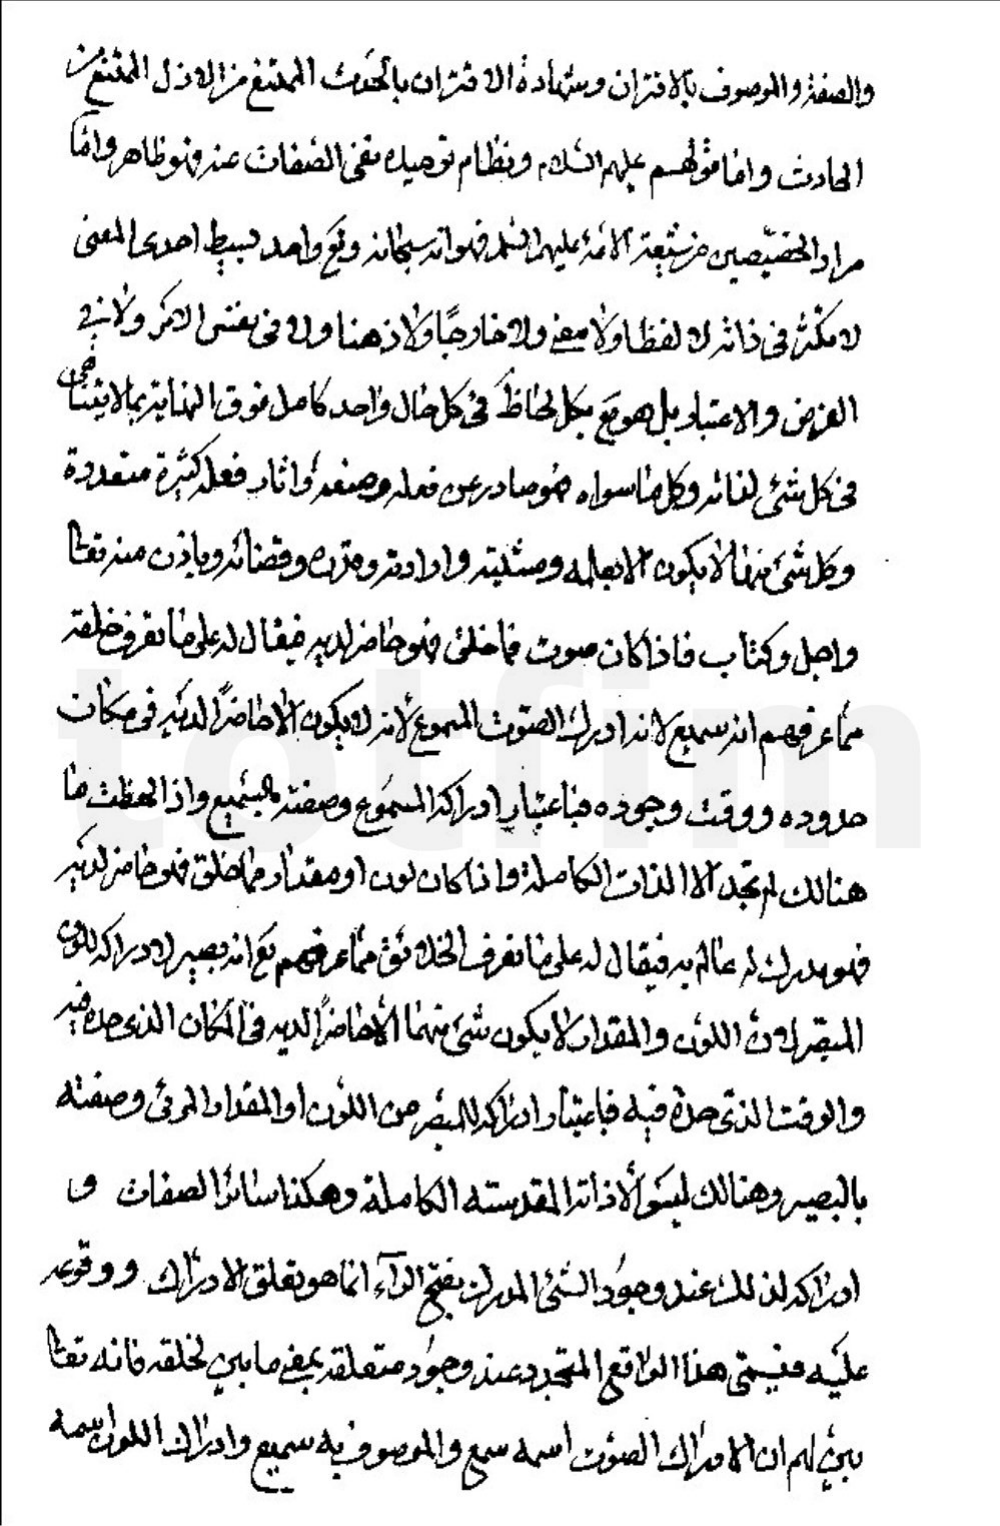 والصفة والموصوف بالاقتران وشهادة الاقتران بالحدث الممتنع من الازل الممتنع من
الحادث واما قولهم عليهم السلام ونظام توحيده نفى الصفات عنه فهو ظاهر واما
مراد الخصيصين من شيعة الائمة عليهم السلام فهو انه سبحانه وتع واحد بسيط احدى المعنى
لا تكثر فى ذاته لا لفظا ولا معنى ولا خارجًا ولا ذهنا ولا فى نفس الامر ولا فى
الفرض والاعتبار بل هو تع بكل لحاظ فى كل حال واحد كامل فوق النهاية بما لا يتناهى
فى كل شئ لذاته وكل ما سواه فهو صادر عن فعله وصنعه واثار فعله كثيرة متعددة
وكل شئ منها لا يكون الا بعلمه ومشيته وارادته وقدره وقضائه وباذن منه تعالى
واجل وكتاب فاذا كان صوت مما خلق فهو حاضر لديه فيقال له على ما تعرف خلقه
مما عرفهم انه سميع لانه ادرك الصوت المسموع لانه لا يكون الا حاضرًا لديه فى مكان
حدوده ووقت وجوده فباعتبار ادراكه المسموع وصفته بالسميع واذا لحظت ما
هنالك لم تجد الا الذات الكاملة واذا كان لون او مقدار مما خلق فهو حاضر لديه
فهو مدرك له عالم به فيقال له على ما تعرف الخلائق مما عرفهم تع انه بصير لادراكه للون
المبصر لان اللون والمقدار لا يكون شئ منهما الا حاضرًا لديه فى المكان الذى حده فيه
والوقت الذى حده فيه فباعتبار ادراكه للمبصر من اللون او المقدار المرئى وصفته
بالبصير وهنالك ليس الا ذاته المقدسة الكاملة وهكذا سائر الصفات و
ادراكه لذلك عند وجود الشئ المدرك بفتح الراء انما هو تعلق الادراك ووقوعه
عليه فيسمى هذا الواقع المتجدد عند وجود متعلقه بمعنى ما بين لخلقه فانه تعالى
بين لهم ان الادراك الصوت اسمه سمع والموصوف به سميع وادراك اللون اسمه